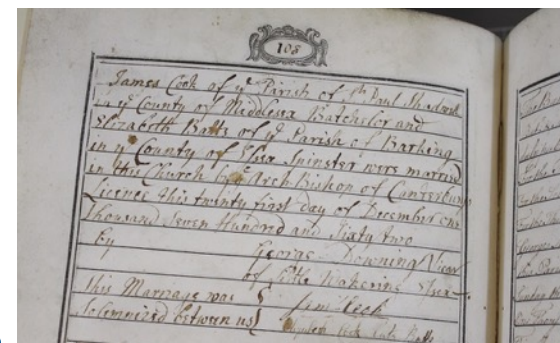 108
James Cook of yᵉ Parish of Sᵗ Paul Shadwell
in yᵉ County of Middlesex Batchelor and
Elizabeth Batts of yᵉ Parish of Barking
in yᵉ County of Essex Spinster were married
in this Church by yᵉ Arch Bishop of Canterbury
Licence this twenty first day of December one
thousand seven Hundred and Sixty two
by George Downing Vicar
of Little Wakering Essex
This Marriage was
Solemnized between us